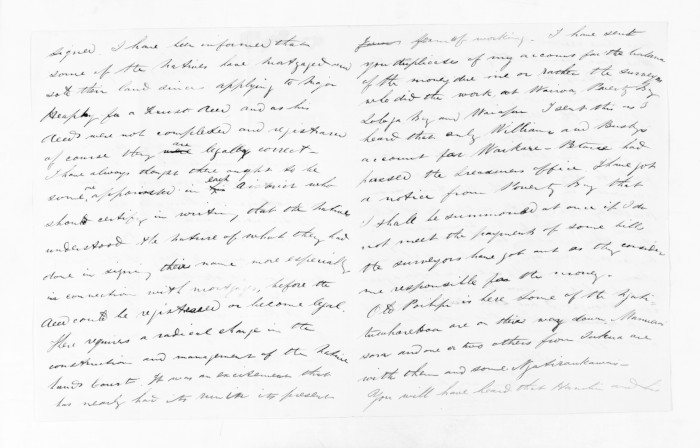 signed. I have been informed that
some of the natives have mortgaged and
sold their land since applying to Major
Heaphy for a Trust deed and as his
deeds were not completed and registered
of course they are legally correct -
I have always thought there ought to be
some one appointed in each district who
should certify in writing, that the natives
understood the nature of what they had
done in signing their name more especially
in connection with mortgages, before the
deed could be registered or become legal.
There requires a radical change in the
construction and management of the Native
lands Courts. It was an excitement that
has nearly had its run in its present
form of working. I have sent
you duplicates of my account for the balance
of the money due me or rather the surveyors
who did the work at Wairoa, Poverty Bay
Tolaga Bay and Waiapu. I sent this as I
heard that only Williams and Busby's
account for had
passed the Treasurers office I have got
a notice from Poverty Bay that
I shall be summoned at once if I do
not meet the payments of some bills
the surveyors have got out as they consider
me responsible for the money.
is here, some of the Ngati-
are on their way down
and one or two others from are
with them and some Ngatiraukawas -
You will have heard that and his